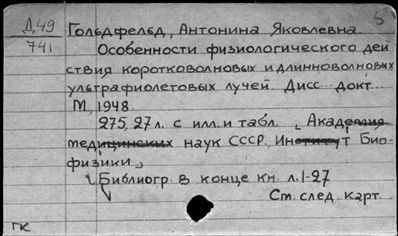 5
Д 49
741
Гольдфельд, Антонина Яковлевна.
Особенности физиологического дей
ствия коротковолновых и длинноволновых
ультрафиолетовых лучей. Дисс... докт...
М., 1948.
275, 27 л. с илл. и табл. (Академия
медицинских наук СССР. Институт Био-
физики)
Библиогр. в конце кн. л. 1-27
См. след. карт.
ГК